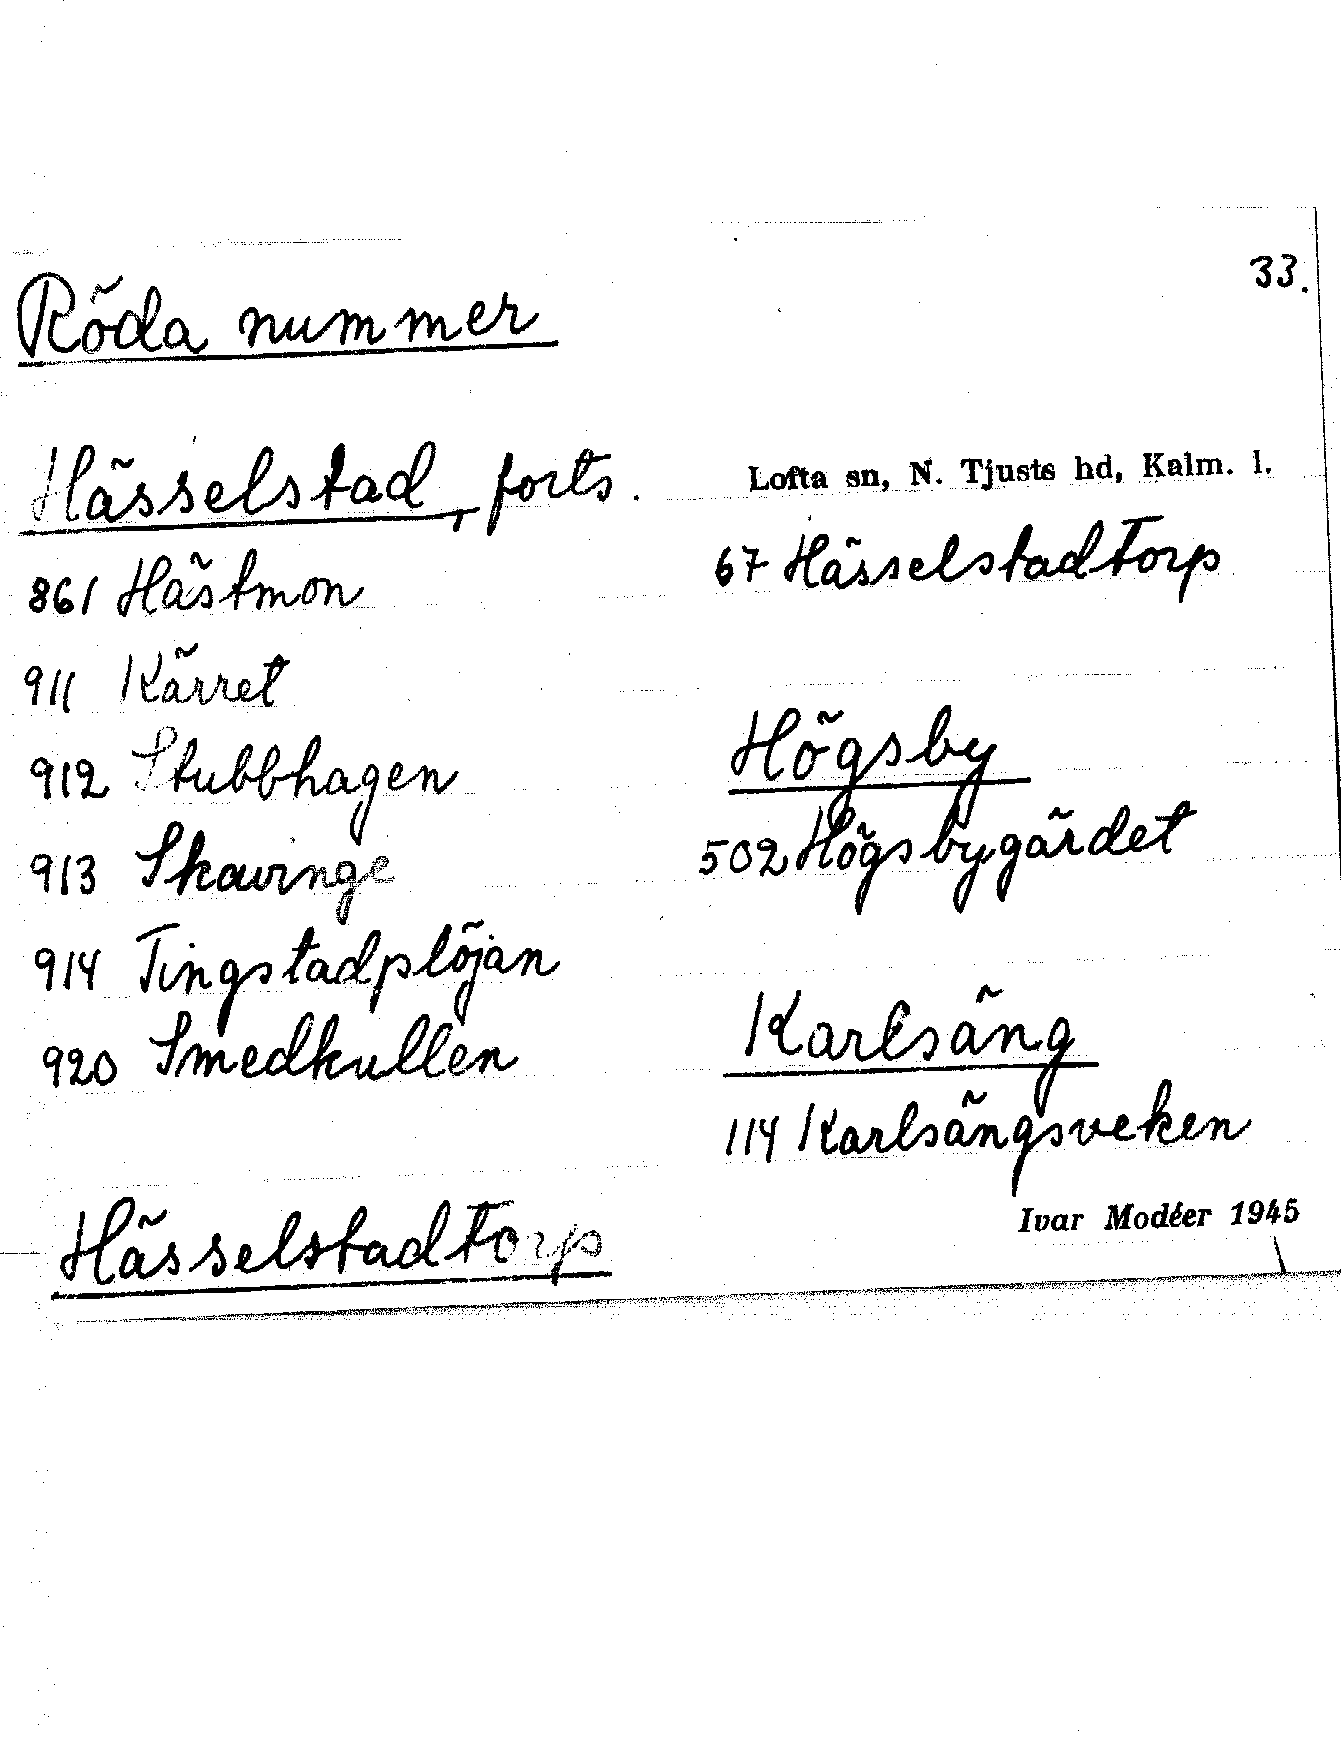 33.
Röda nummer
Hässelstad, forts.
861 Hästmon
911 Kärret
912 Stubbhagen
913 Skavinge
914 Tingstadplöjan
920 Smedkullen
Hässelstadtorp
Lofta sn, N. Tjusts hd, Kalm. l.
67 Hässelstadtorp
Högsby
502 Högsbygärdet
Karlsäng
114 Karlsängsveken
Ivar Modéer 1945